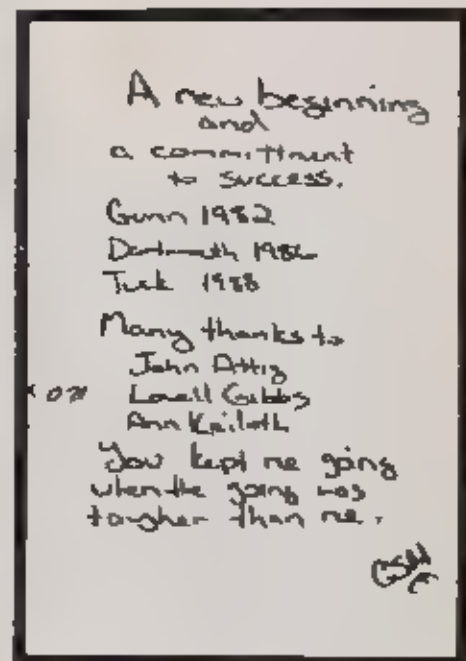 A new beginning
and
a committment
to success.
Gunn 1982
Dartmouth 1986
Tuck 1988
Many thanks to
John Attig
Lowell Gibbs
Ann
You kept me going
when the going was
tougher than me.